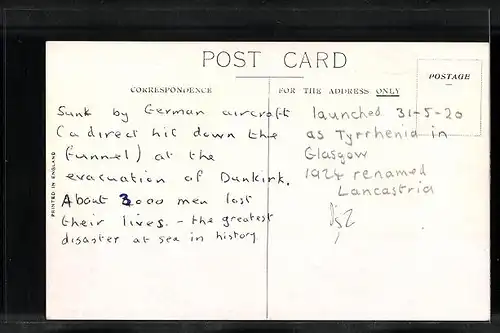 POST CARD
CORRESPONDENCE
FOR THE ADDRESS ONLY
POSTAGE
PRINTED IN ENGLAND
Sunk by German aircraft
(a direct hit down the
funnel) at the
evacuation of Dunkirk.
About 3000 men lost
their lives. - the greatest
disaster at sea in history
launched 31-5-20
as Tyrrhenia in
Glasgow
1924 renamed
Lancastria